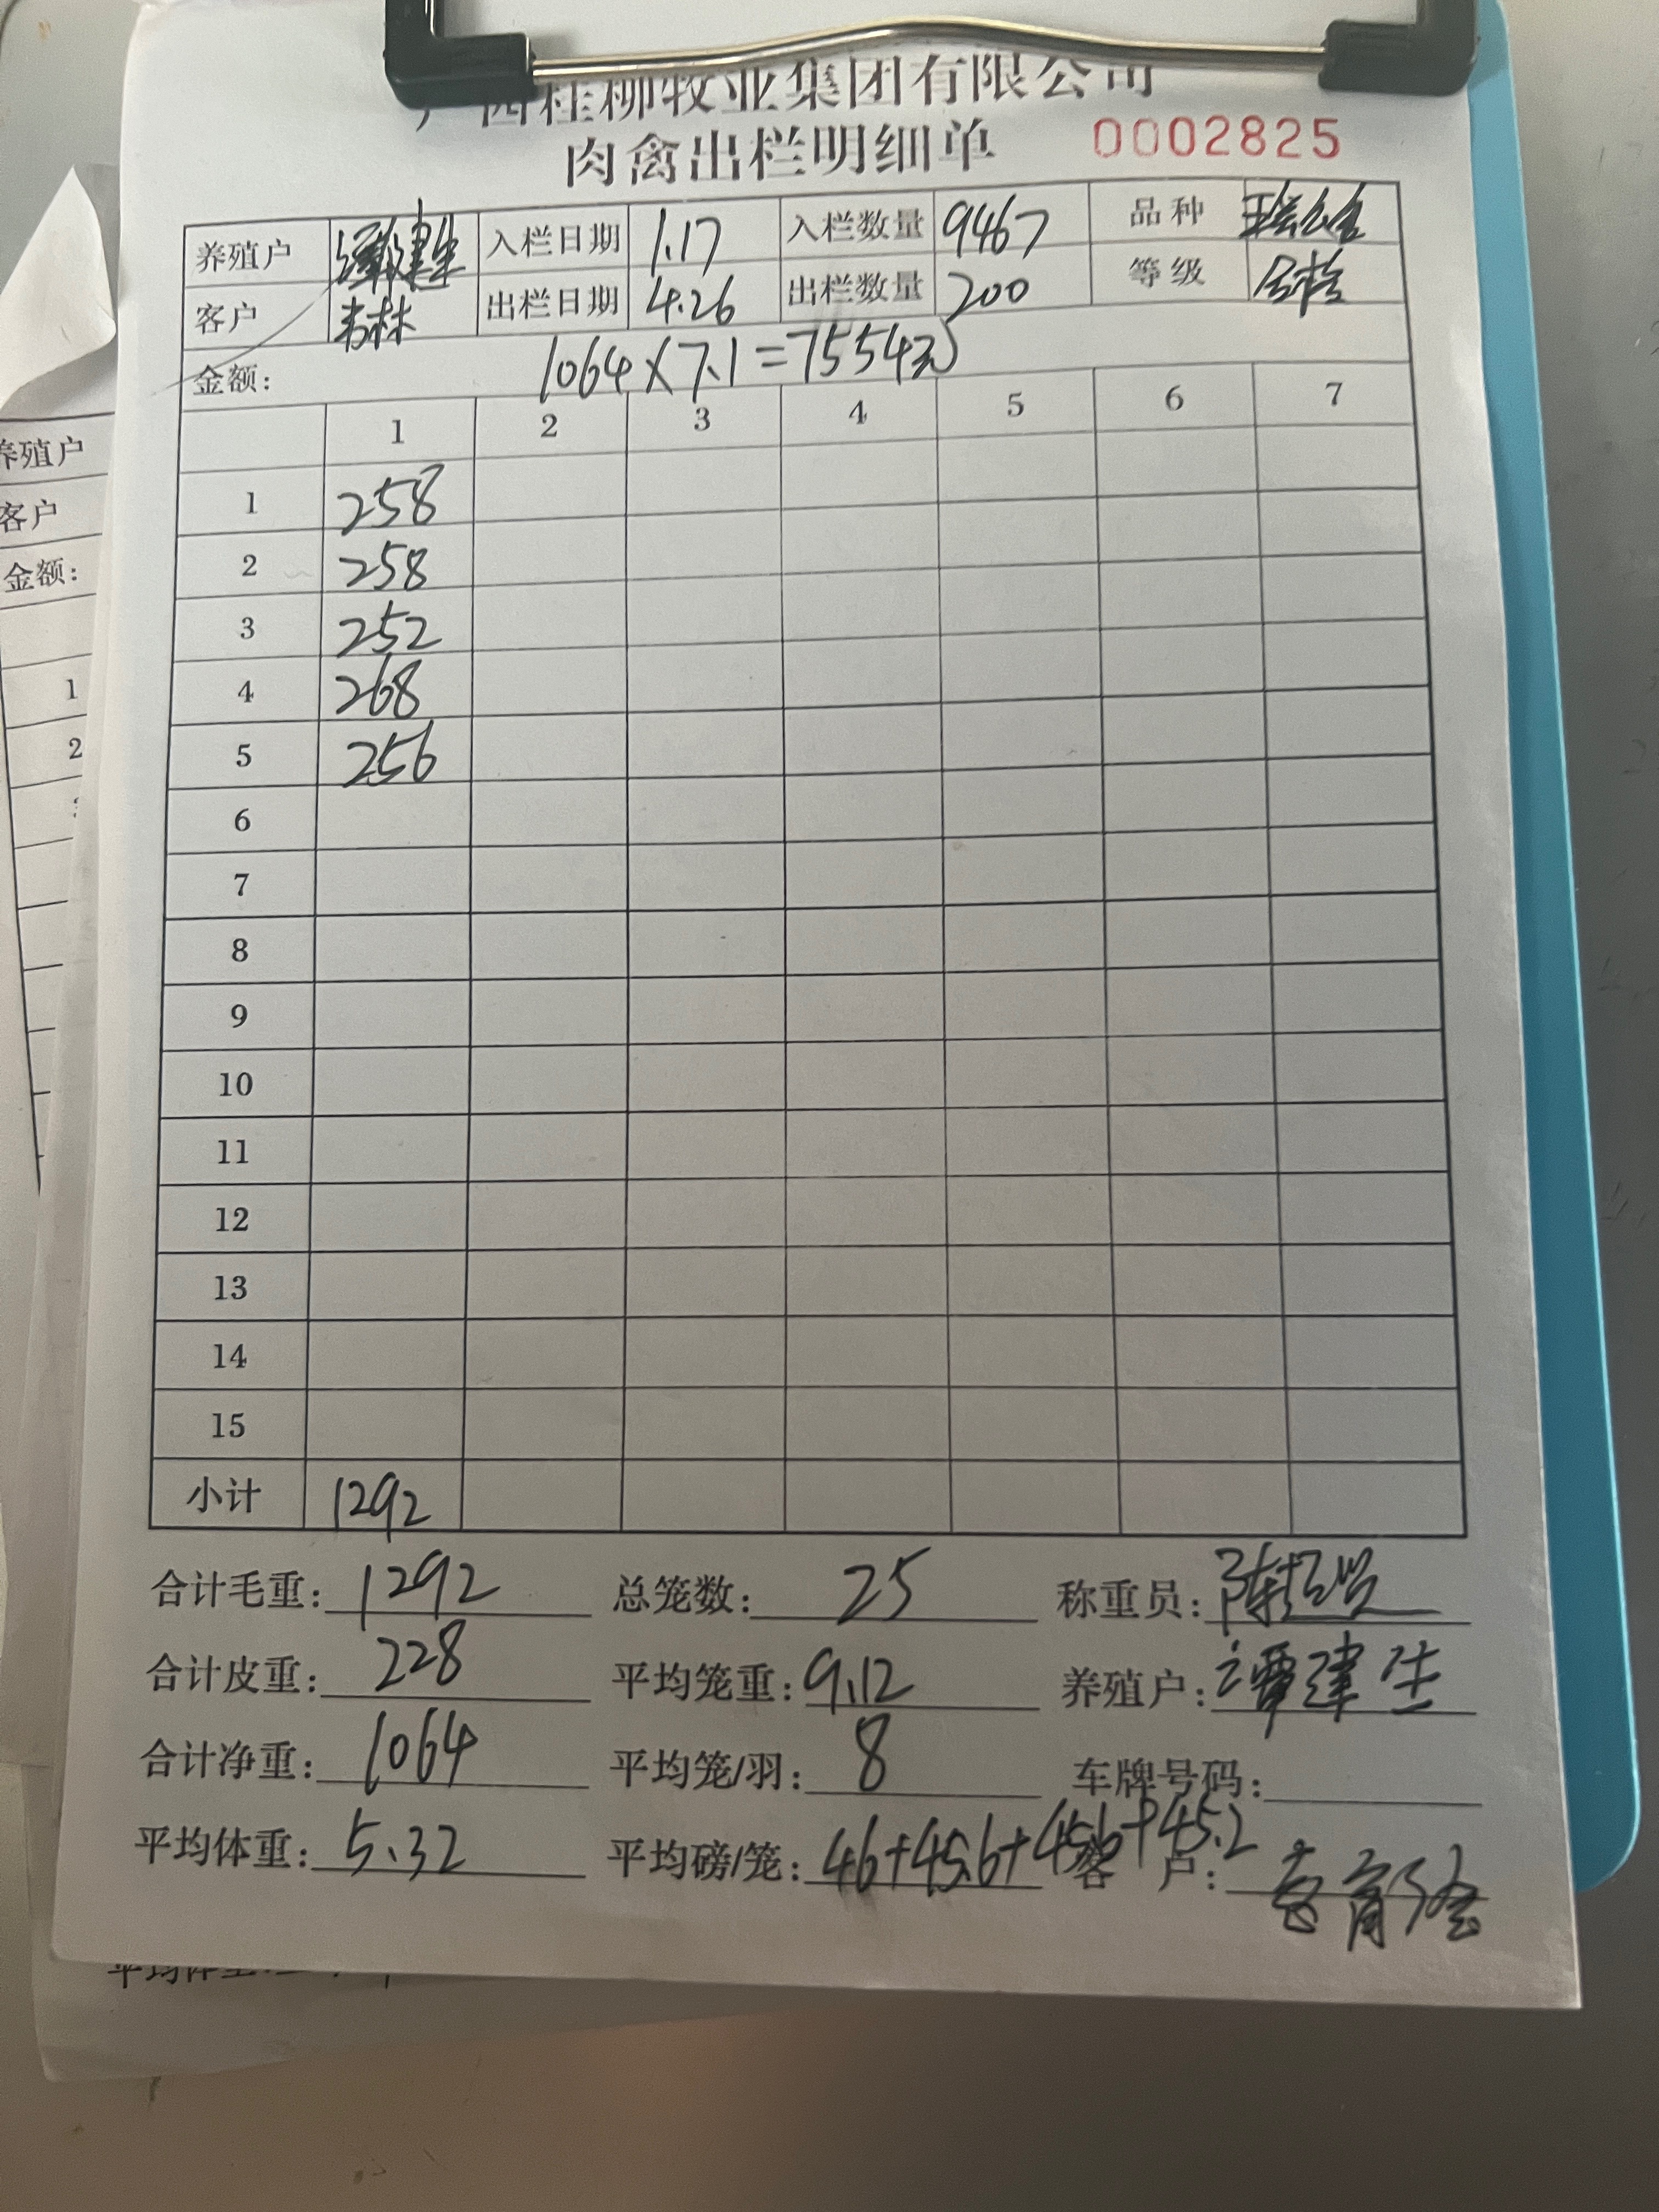 广西桂柳牧业集团有限公司
肉禽出栏明细单 0002825
养殖户 谭建生 入栏日期 1.17 入栏数量 9467 品种
客户 韦林 出栏日期 4.26 出栏数量 200 等级 合格
金额: 1064×7.1=7554元
1 2 3 4 5 6 7
1 258
2 258
3 252
4 268
5 256
6
7
8
9
10
11
12
13
14
15
小计 1292
合计毛重: 1292 总笼数: 25 称重员: 陈
合计皮重: 228 平均笼重: 9.12 养殖户: 谭建生
合计净重: 1064 平均笼/羽: 8 车牌号码:
平均体重: 5.32 平均磅/笼: 46+45.6+45.6+45.2 客 户:
养殖户
客户
金额:
1
2
平均体重: